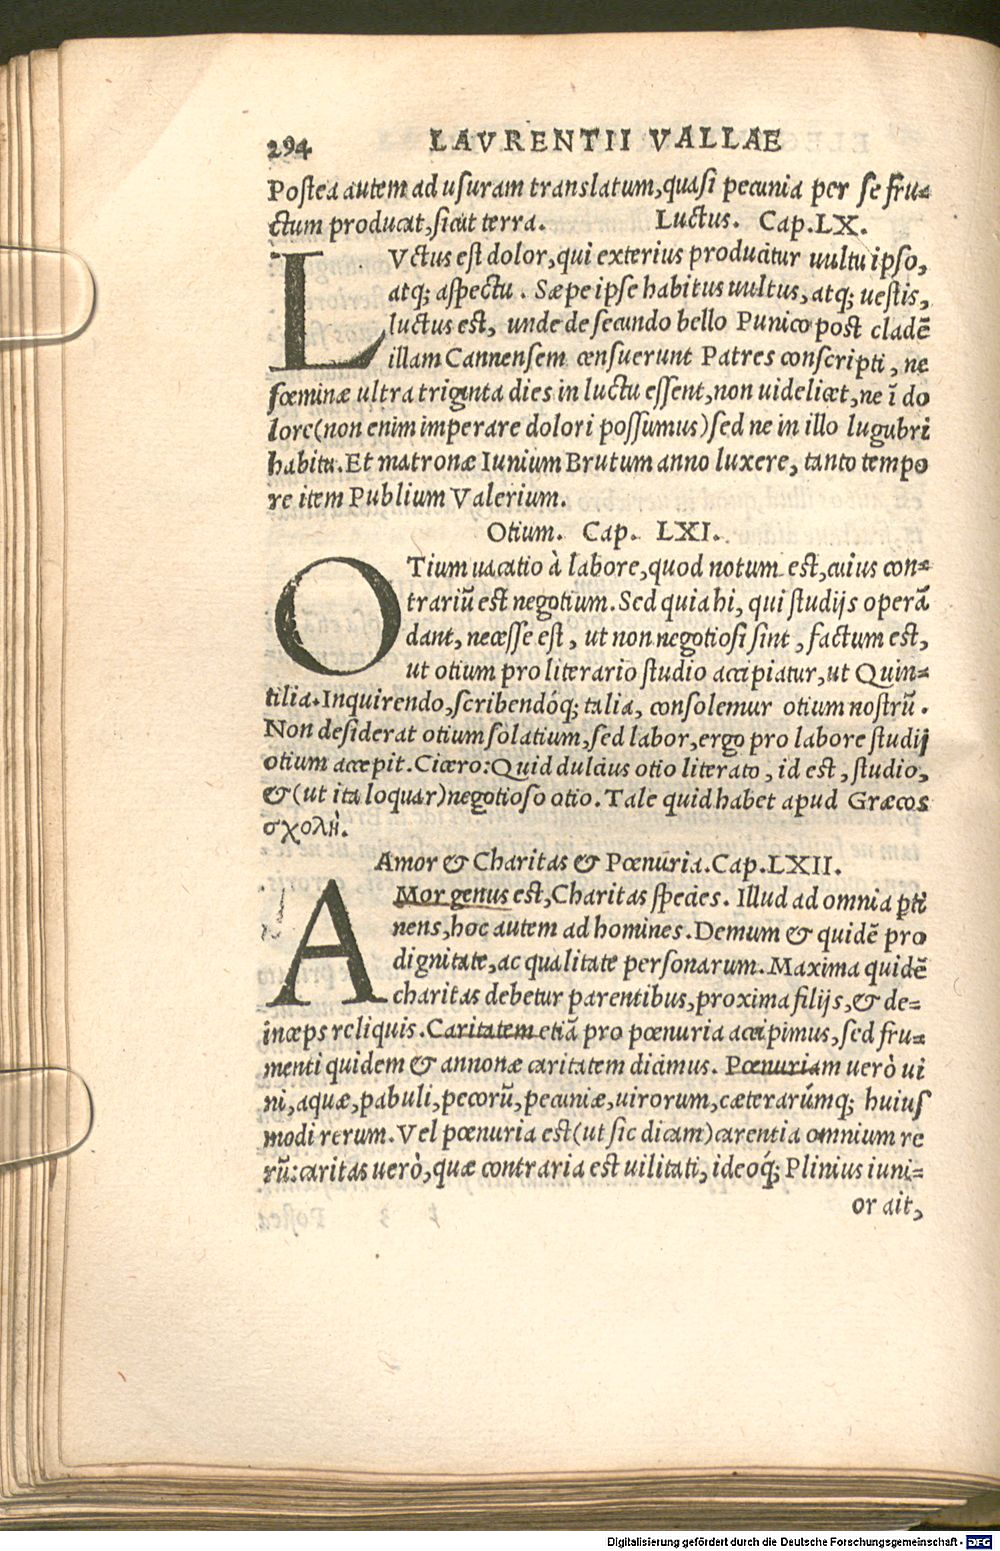 294 LAVRENTII VALLAE
Postea autem ad usuram translatum, quasi pecunia per se fru-
ctum producat, sicut terra. Luctus. Cap. LX.
LVctus est dolor, qui exterius producitur uultu ipso,
atq; aspectu. Sæpe ipse habitus uultus, atq; uestis,
luctus est, unde de secundo bello Punico post cladē
illam Cannensem censuerunt Patres conscripti, ne
fœminæ ultra triginta dies in luctu essent, non uidelicet, ne ī do
lore (non enim imperare dolori possumus) sed ne in illo lugubri
habitu. Et matronæ Iunium Brutum anno luxere, tanto tempo
re item Publium Valerium.
Otium. Cap. LXI.
OTium uacatio à labore, quod notum est, cuius con-
trariū est negotium. Sed quia hi, qui studijs operā
dant, necesse est, ut non negotiosi sint, factum est,
ut otium pro literario studio accipiatur, ut Quin-
tilia. Inquirendo, scribendóq; talia, consolemur otium nostrū.
Non desiderat otium solatium, sed labor, ergo pro labore studij
otium accepit. Cicero: Quid dulcius otio literato, id est, studio,
& (ut ita loquar) negotioso otio. Tale quid habet apud Græcos
σχολὴ.
Amor & Charitas & Pœnuria. Cap. LXII.
AMor genus est, Charitas species. Illud ad omnia ꝑti
nens, hoc autem ad homines. Demum & quidē pro
dignitate, ac qualitate personarum. Maxima quidē
charitas debetur parentibus, proxima filijs, & de-
inceps reliquis. Caritatem etiā pro pœnuria accipimus, sed fru-
menti quidem & annonæ caritatem dicimus. Pœnuriam uerò ui
ni, aquæ, pabuli, pecorū, pecuniæ, uirorum, cæterarúmq; huius
modi rerum. Vel pœnuria est (ut sic dicam) carentia omnium re
rū: caritas uerò, quæ contraria est uilitati, ideoq́; Plinius iuni-
or ait,
Digitalisierung gefördert durch die Deutsche Forschungsgemeinschaft - DFG